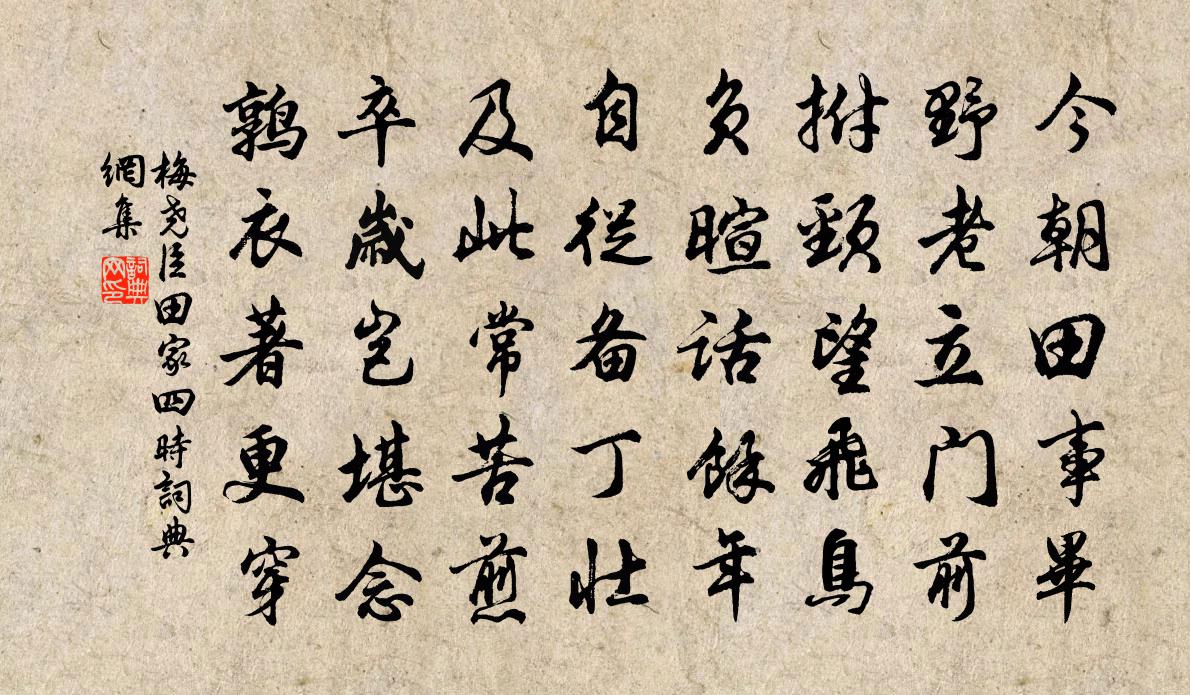 今朝田事畢
野老立门前
拊頸望飛鳥
負暄話餘年
自從备丁壯
及此常苦煎
卒歲豈堪念
鶉衣著更穿
梅堯臣田家四時詞典
網集
詞典
网印